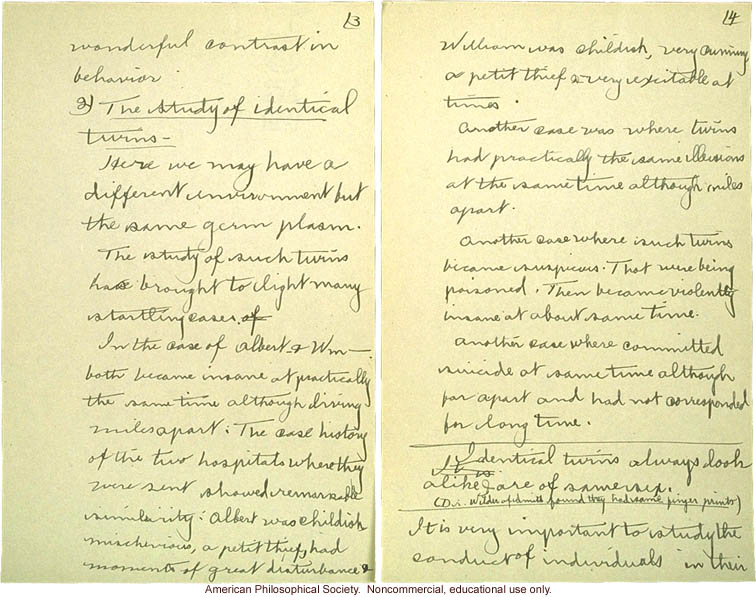 13
wonderful contrast in
behavior
2) The study of identical
twins -
Here we may have a
different environment but
the same germ plasm.
The study of such twins
has brought to light many
startling cases. of
In the case of Albert & Wm -
both became insane at practically
the same time although living
miles apart. The case history
of the two hospitals where they
were sent showed remarkable
similarity: Albert was childish
mischevious, a petit thief, had
moments of great disturbance &
14
William was childish, very cunning
a petit thief & very excitable at
times.
Another case was where twins
had practically the same illusions
at the same time although miles
apart.
Another case where such twins
became suspicious. That were being
poisoned. Then became violently
insane at about same time.
Another case where committed
suicide at same time although
far apart and had not corresponded
for long time.
Identical twins always look
alike & are of same sex.
found they had same finger prints)
It is very important to study the
conduct of individuals in their
American Philosophical Society. Noncommercial, educational use only.